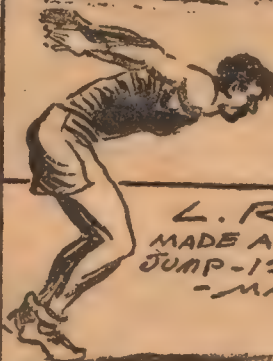 L. R
MADE A
JUMP - 1
- MA